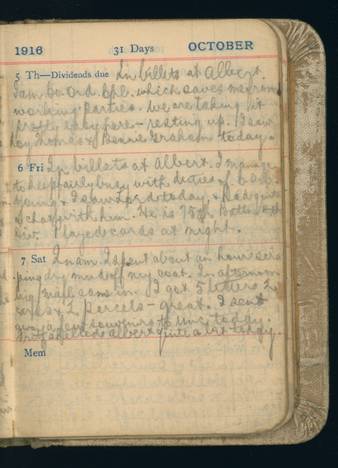 1916 31 Days OCTOBER
5 Th—Dividends due In billets at Albert.
I am Co. Ord. Cpl. which saves me from
working parties. We are taking it
pretty easy here – resting up. I saw
Thomas & Bennie Graham today.
6 Fri In billets at Albert. I manage
to keep fairly busy with duties of C.O.C.
Young & I saw Lord today, & had quite
a chat with him. He is 75th Batt.
Div. Played cards at night.
7 Sat In am. I spent about an hour scra
ping dry mud off my coat. In afternoon
big mail came in. I got 5 letters 2
cards & 2 parcels – great. I sent
away a few souvenirs to today.
Fritz shelled Albert quite a bit today.
Mem